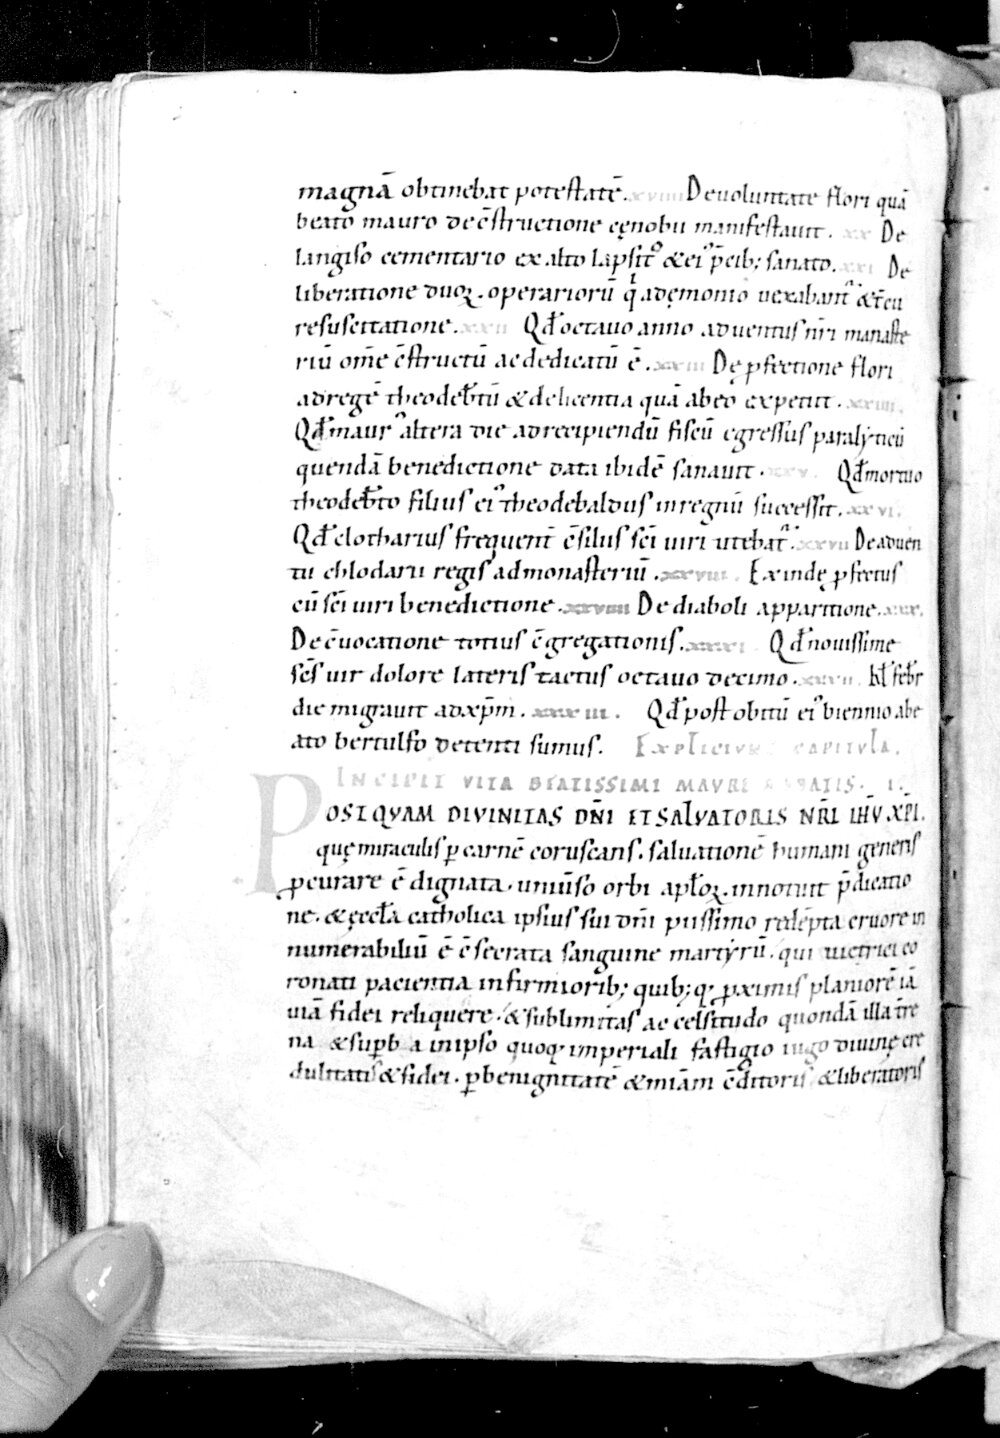 magnā obtinebat potestatē. xviiii De voluntate flori quā
beato mauro de c̄structione cęnobii manifestavit. xx De
langiso cementario ex alto lapsit᷒ & ei᷒ p̄cib; sanato. xxi De
liberatione duoꝝ. operarioru̅ qͥ a dęmonio vexabant᷒ &
resuscitatione. xxii Qđ octavo anno adventus nr̄i monaste
riū om̄e c̄structū ac dedicatū ē. xxiii De ꝓfectione flori
ad regē theodebtū & de licentia quā ab eo expetiit. xxiiii.
Qđ maur᷒ altera die ad recipiendū fiscū egressus paralyticū
quendā benedictione data ibidē sanavit. xxv. Qđ mortuo
theodebto filius ei᷒ theodebaldus in regnū successit. xxvi.
Qđ clotharius frequent̄ c̄silus sc̄i viri utebat᷒. xxvii De adven
tu chlodarii regis ad monasteriū. xxviii. Exindę ꝓfectus
cū sc̄i viri benedictione. xxviiii De diaboli apparitione. xxx.
De c̄vocatione totius c̄gregationis. xxxi Qđ novissime
sc̄s vir dolore lateris tactus octavo decimo. xxxii. kł febr
die migravit ad xp̄m. xxxiii. Qđ post obitū ei᷒ biennio a be
ato bertulfo detenti sumus. EXPLICIUNT CAPITULA.
INCIPIT VITA BEATISSIMI MAURI ABBATIS. I.
POSTQVAM DIVINITAS DN̄I ET SALVATORIS NR̄I IHV̄ XP̄I.
quę miraculis ꝑ carnē coruscans. salvationē humani generis
ꝓcurare ē dignata. univ̄so orbi apłoꝝ. innotuit p̄dicatio
ne. & ęccła catholica ipsius sui dn̄i piissimo redēpta cruore in
numerabiliū ē c̄secrata sanguine martyrū. qui victrici co
ronati pacientia infirmiorib; quib;q; ꝓximis planiorē iā
viā fidei reliquere. & sublimitas ac celsitudo quondā illa t̄re
na & supba in ipso quoq; imperiali fastigio iugo divinę cre
dulitatis & fidei. ꝑ benignitatē & miām c̄ditoris & liberatoris